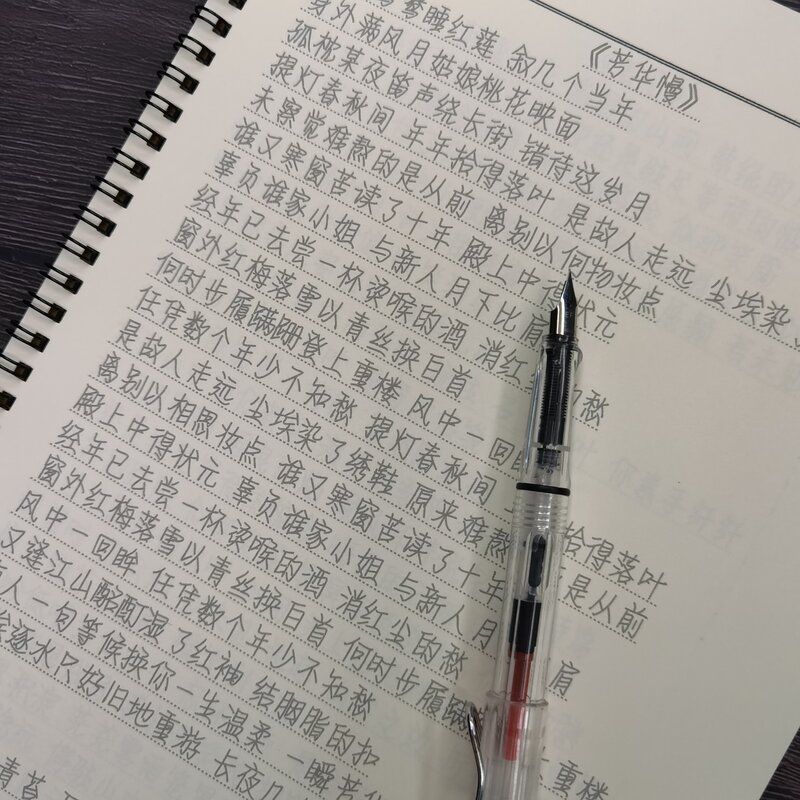 《芳华慢》
鸯睡红莲 叙几个当年
身外满风月姑娘桃花映面
孤枕某夜笛声绕长街 错待这岁月
提灯春秋间 年年拾得落叶 是故人走远 尘埃染
未察觉难熬的是从前 离别以何物妆点
谁又寒窗苦读了十年 殿上中 状元
辜负谁家小姐 与新人月下比肩
经年已去尝一杯烫喉的酒 消红 愁
窗外红梅落雪以青丝换白首
何时步履蹒跚登上重楼 风中一回眸
任凭数个年少不知愁 提灯春秋间 拾得落叶
是故人走远 尘埃染了绣鞋 原来难熬 是从前
离别以相思妆点 谁又寒窗苦读了十年
殿上中得状元 辜负谁家小姐 与新人月 肩
经年已去尝一杯烫喉的酒 消红尘的愁
窗外红梅落雪以青丝换白首 何时步履蹒 重楼
风中一回眸 任凭数个年少不知愁
又逢江山酩酊湿了红袖 结胭脂的扣
人一句等候换你一生温柔 一瞬芳华
逐水只好旧地重游 长夜几
青苔